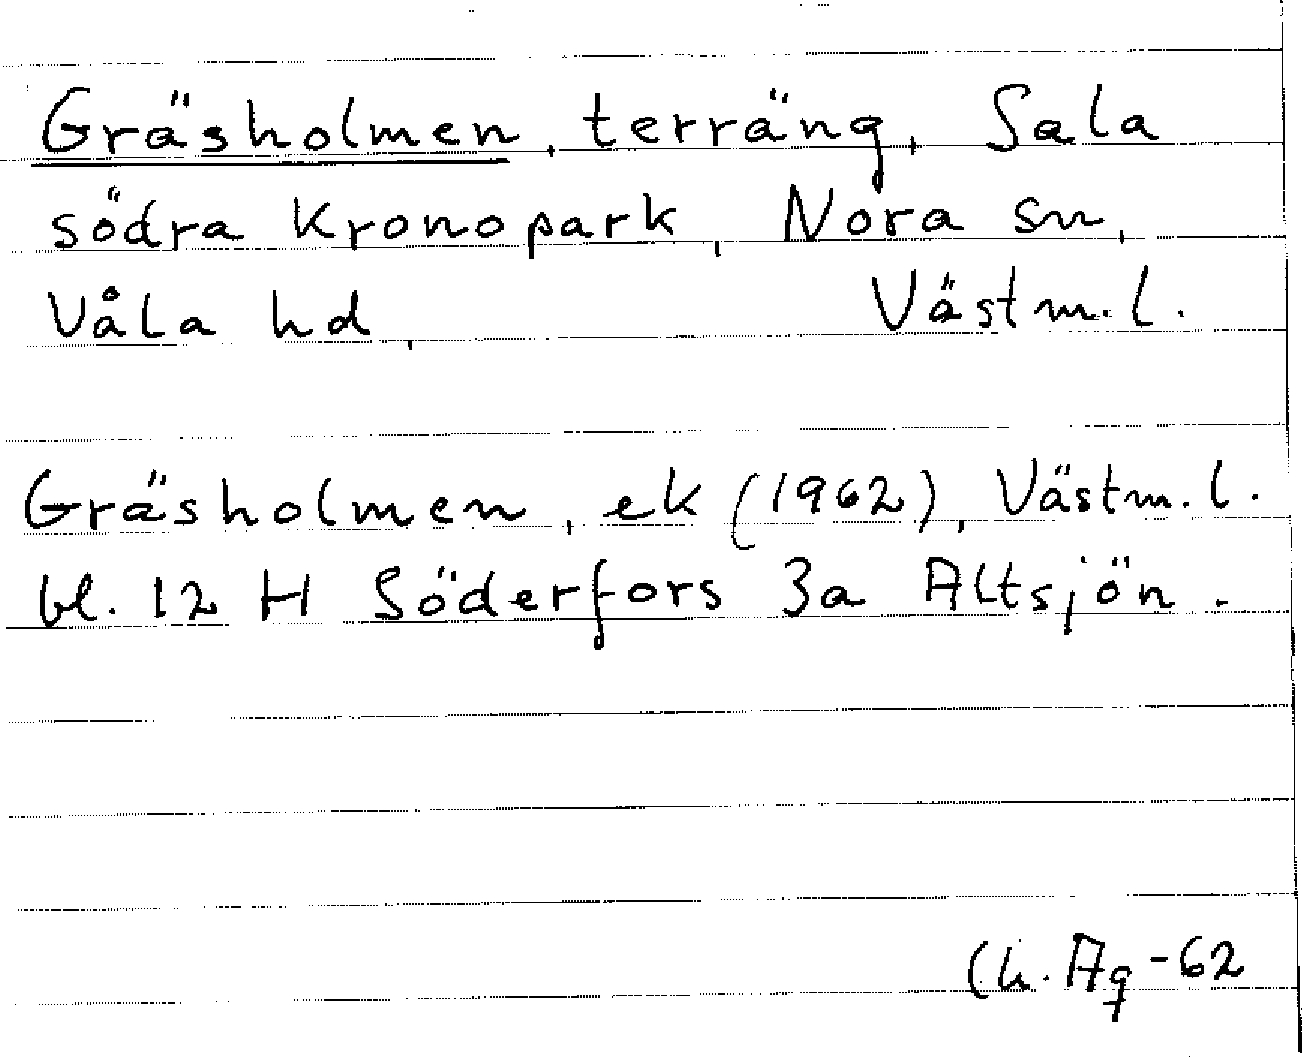 Gräsholmen, terräng, Sala
södra kronopark, Nora sn,
Våla hd, Västm. l.
Gräsholmen, ek (1962), Västm. l.
bl. 12 H Söderfors 3a Altsjön.
Ag -62